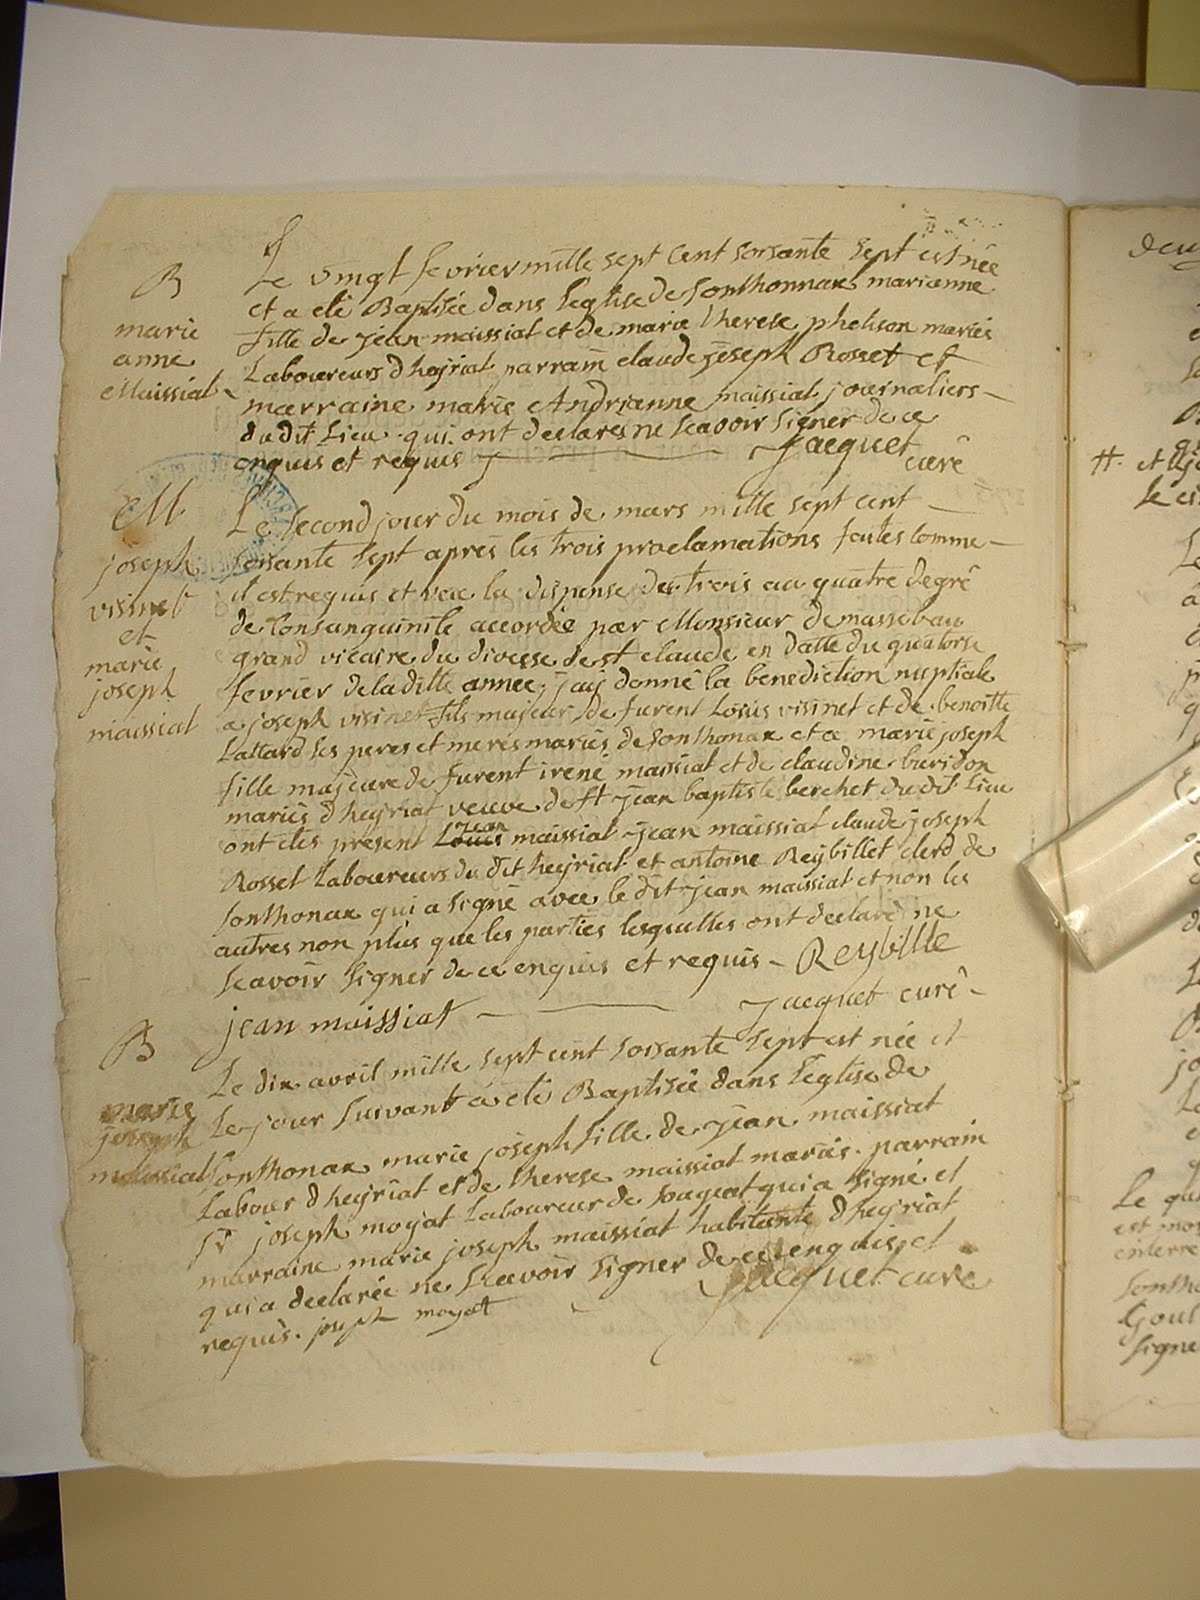 B
marie
anne
Maissiat
Le vingt fevrier mille sept cent soisante sept est née
et a eté Baptisée dans l'eglise de sonthonnax marianne
fille de jean maissiat et de marie therese phelison mariés
Laboureurs d heyriat parrain claude joseph Rosset et
marraine marie Andrianne maissiat journaliers
du dit Lieu qui ont declarés ne scavoir signer de ce
enquis et requis Jacquet curé
M
joseph
visinet
et
marie
joseph
maissiat
Le second jour du mois de mars mille sept cent
soisante sept apres les trois proclamations faites comme
il est requis et veu la dispense du trois au quatre degré
de Consanguinité accordée par Monsieur de massebau
grand vicaire du diocese de st claude en datte du quatorse
fevrier de la ditte année, j'ay donné la benediction nuptiale
a joseph visinet fils majeur de furent Louis visinet et de benoitte
Lallard ses peres et meres mariés de sonthonax et a marie joseph
fille majeure de furent irené maissiat et de claudine buridon
mariés d heyriat veuve de ft jean baptiste berchet du dit Lieu
ont etés present Louis jean maissiat jean maissiat claude joseph
Rosset Laboureurs du dit heyriat et antoine Reybillet clerd de
sonthonax qui a signé avec le dit jean maissiat et non les
autres non plus que les parties lesquelles ont declaré ne
scavoir signer de ce enquis et requis Reybille
jean maissiat Jacquet curé
B
marie
joseph
maissiat
Le dix avril mille sept cent soisante sept est née et
Le jour suivant a eté Baptisée dans l'eglise de
sonthonax marie joseph fille de jean maissiat
Labour d heyriat et de therese maissiat mariés. parrain
Sr joseph moyat Laboureur de sougeat qui a signé et
marraine marie joseph maissiat habitante d heyriat
qui a declarée ne scavoir signer de ce enquis et
requis. joseph moyat Jacquet curé
deux
#. et
Le qu
est mor
enterre
sontho
signe